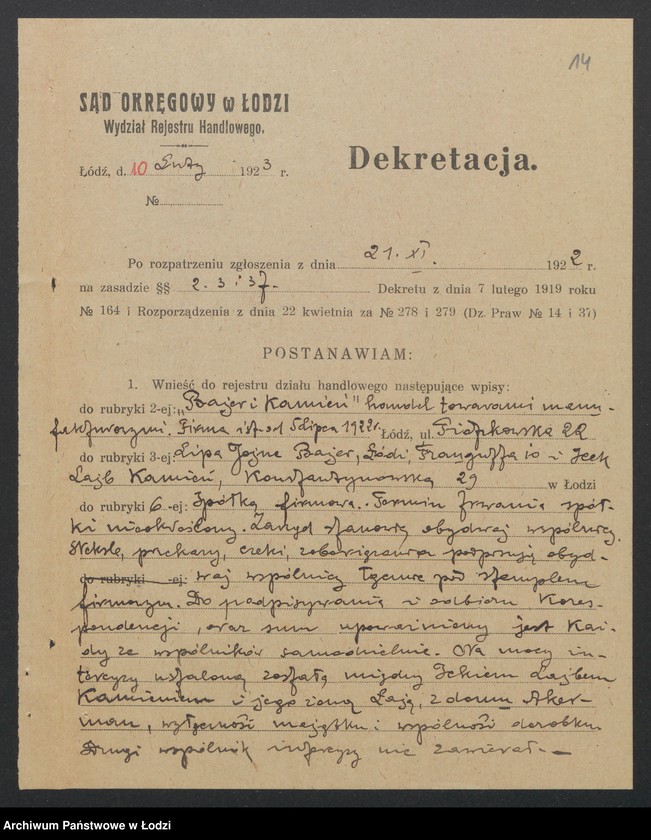 14
SĄD OKRĘGOWY w ŁODZI
Wydział Rejestru Handlowego.
Dekretacja.
Łódź, d. 10 Luty 1923 r.
№
Po rozpatrzeniu zgłoszenia z dnia 21. XI. 1922 r.
na zasadzie §§ 2. 3 i 37. Dekretu z dnia 7 lutego 1919 roku
№ 164 i Rozporządzenia z dnia 22 kwietnia za № 278 i 279 (Dz. Praw № 14 i 37)
POSTANAWIAM:
1. Wnieść do rejestru działu handlowego następujące wpisy:
do rubryki 2-ej: „Bajer i Kamień" handel towarami manu-
fakturowymi. Firma ist. od 5 lipca 1922 r. Łódź, ul. Piotrkowska 22
do rubryki 3-ej: Lipa Jojne Bajer, Łódź, 10 i Icek
Lajb Kamień, Konstantynowska 29 w Łodzi
do rubryki 6-ej: Spółka firmowa. Termin trwania spół-
ki nieokreślony. Zarząd stanowią obydwaj wspólnicy.
Weksle, przekazy, czeki, zobowiązania podpisują obyd-
do rubryki -ej: waj wspólnicy łącznie pod stemplem
firmowym. Do podpisywania i odbioru kores-
pondencji, oraz sum upoważniony jest każ-
dy ze wspólników samodzielnie. Na mocy in-
tercyzy ustaloną została między Ickiem Lajbem
Kamieniem i jego żoną Łają, z domu Aker-
man, wyłączność majątku i wspólność dorobku.
Drugi wspólnik intercyzy nie zawierał.
Archiwum Państwowe w Łodzi